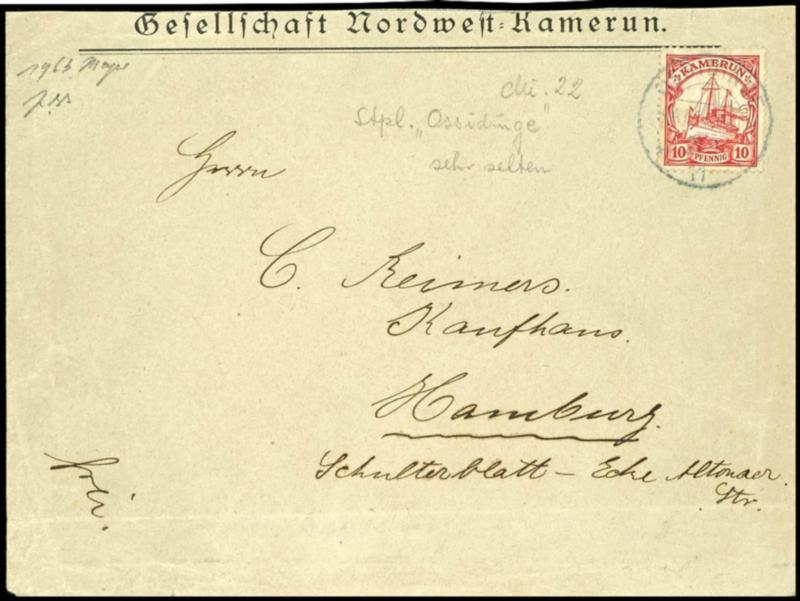 Gesellschaft Nordwest-Kamerun.
1963
KAMERUN
10 PFENNIG 10
Mi. 22
Stpl. „Ossidinge“
sehr selten
Herrn
C. Reimers.
Kaufhaus.
Hamburg.
Schulterblatt – Ecke Altonaer
Str.